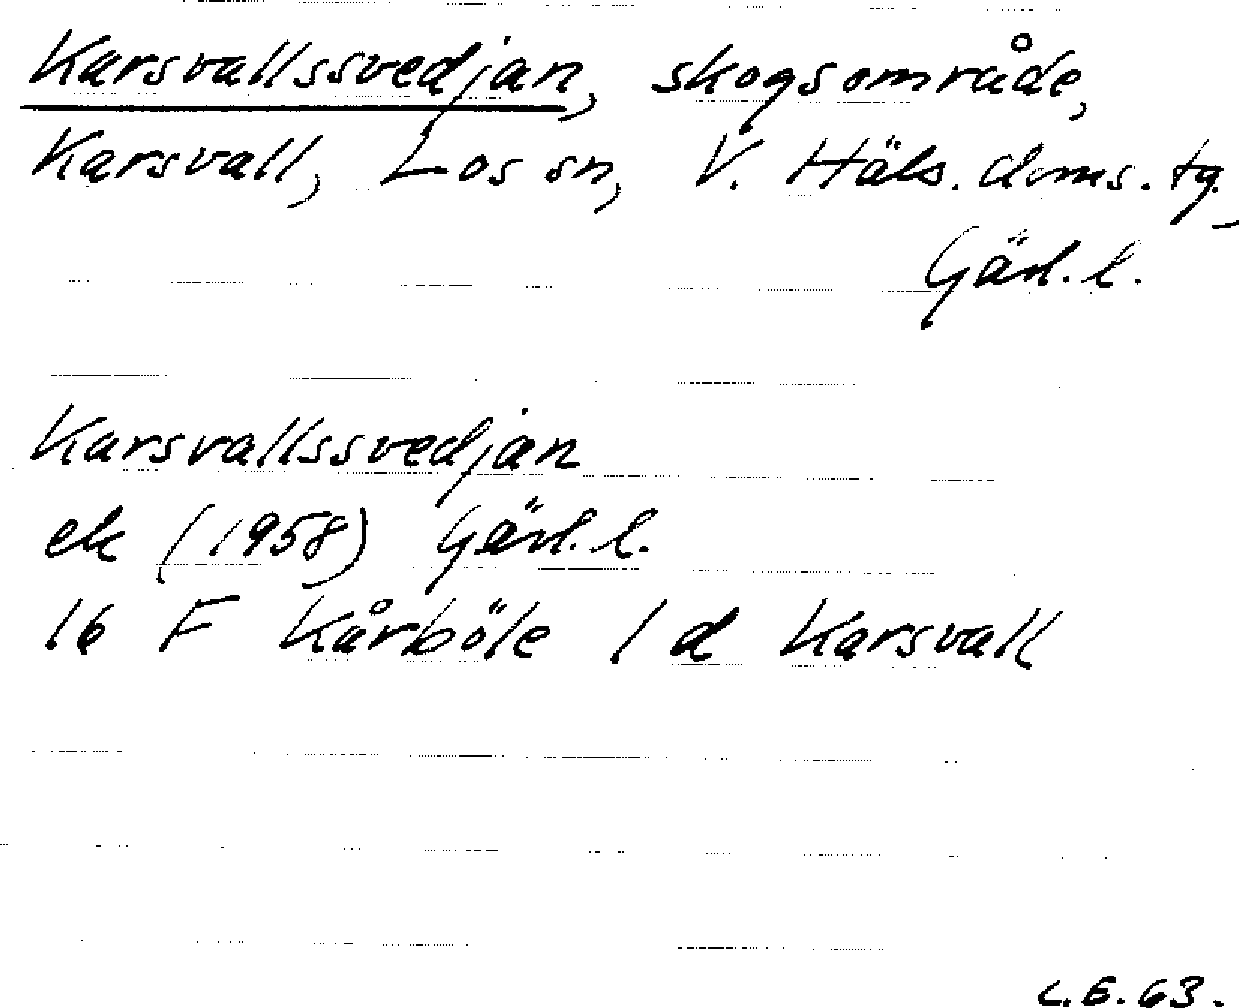 Karsvallssvedjan, skogsområde,
Karsvall, Los sn, V. Häls. doms. tg.,
Gävl. l.
Karsvallssvedjan
ek (1958) Gävl. l.
16 F Kårböle 1 d Karsvall
C.E. 63.